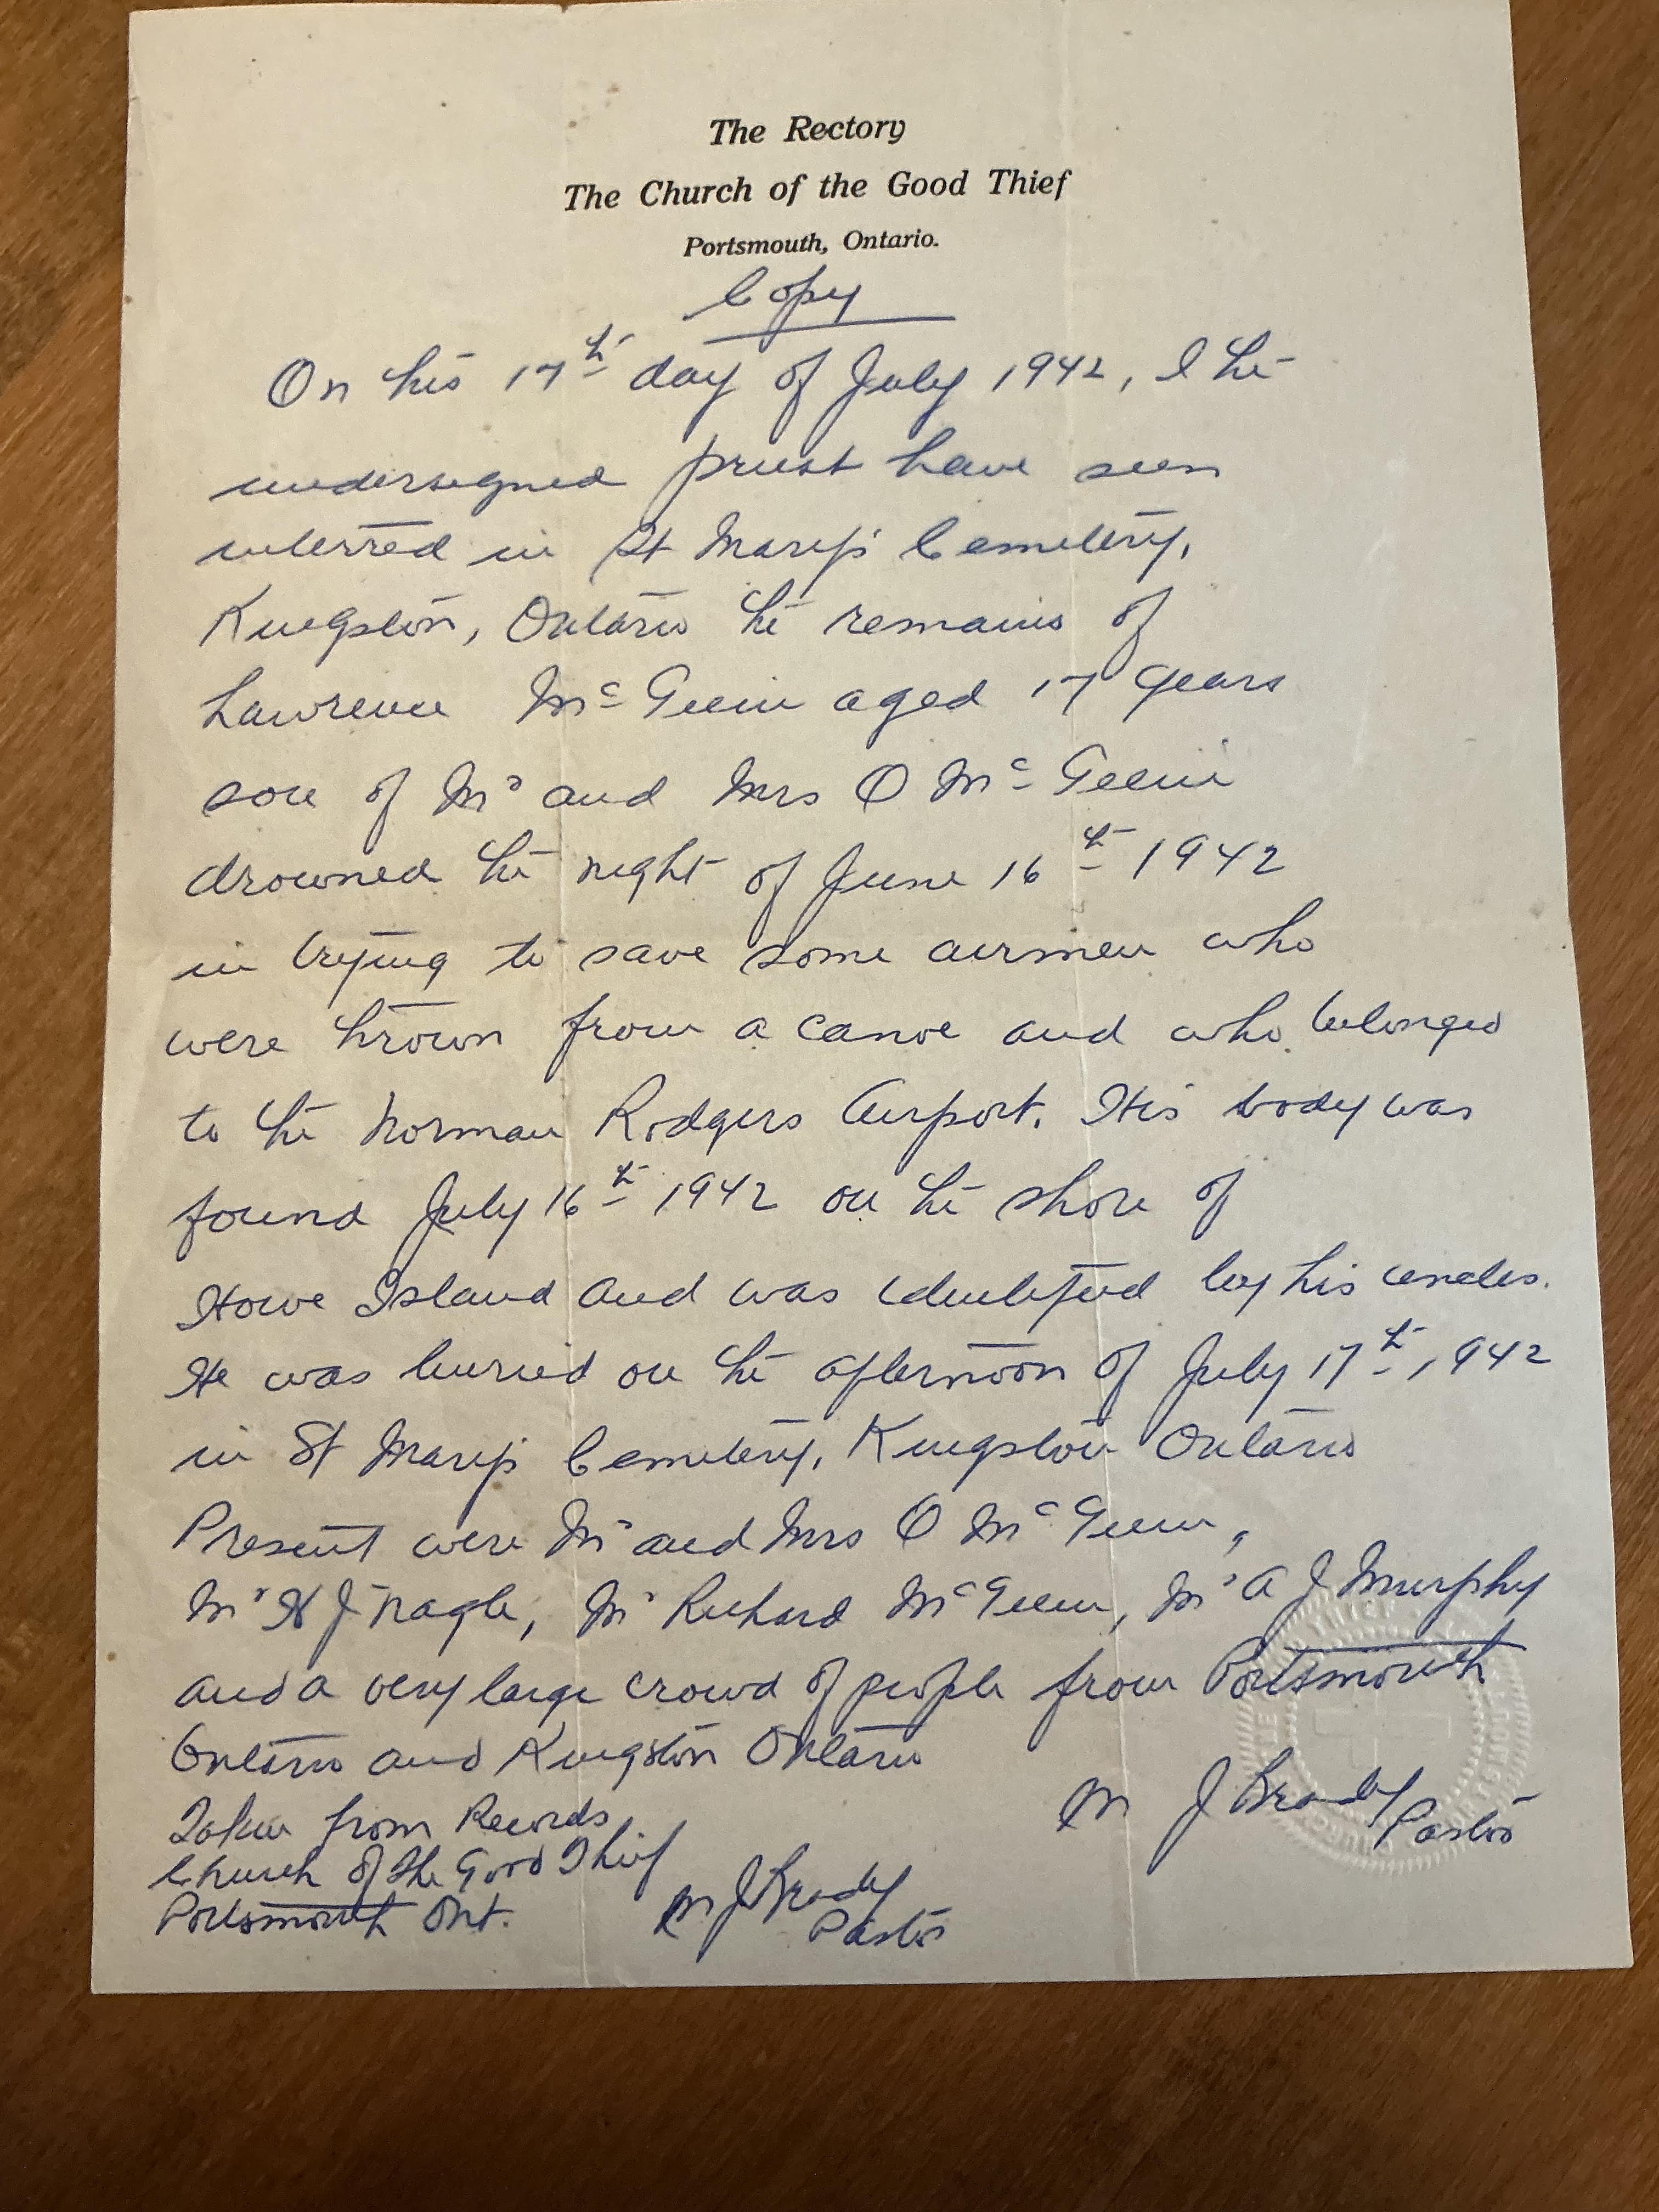 The Rectory
The Church of the Good Thief
Portsmouth, Ontario.
Copy
On this 17th day of July 1942, I the
undersigned priest have seen
interred in St Mary's Cemetery,
Kingston, Ontario the remains of
Lawrence McGeein aged 17 years
son of Mr and Mrs O McGeein
drowned the night of June 16th 1942
in trying to save some airmen who
were thrown from a canoe and who belonged
to the Norman Rodgers Airport. His body was
found July 16th 1942 on the shore of
Howe Island and was identified by his uncles.
He was buried on the afternoon of July 17th, 1942
in St Mary's Cemetery, Kingston Ontario
Present were Mr and Mrs O McGeein,
Mr H J Nagle, Mr Richard McGeein, Mr A J Murphy
and a very large crowd of people from Portsmouth
Ontario and Kingston Ontario
M J Brady
Pastor
Taken from Records
Church of the Good Thief
Portsmouth Ont.
M J Brady
Pastor